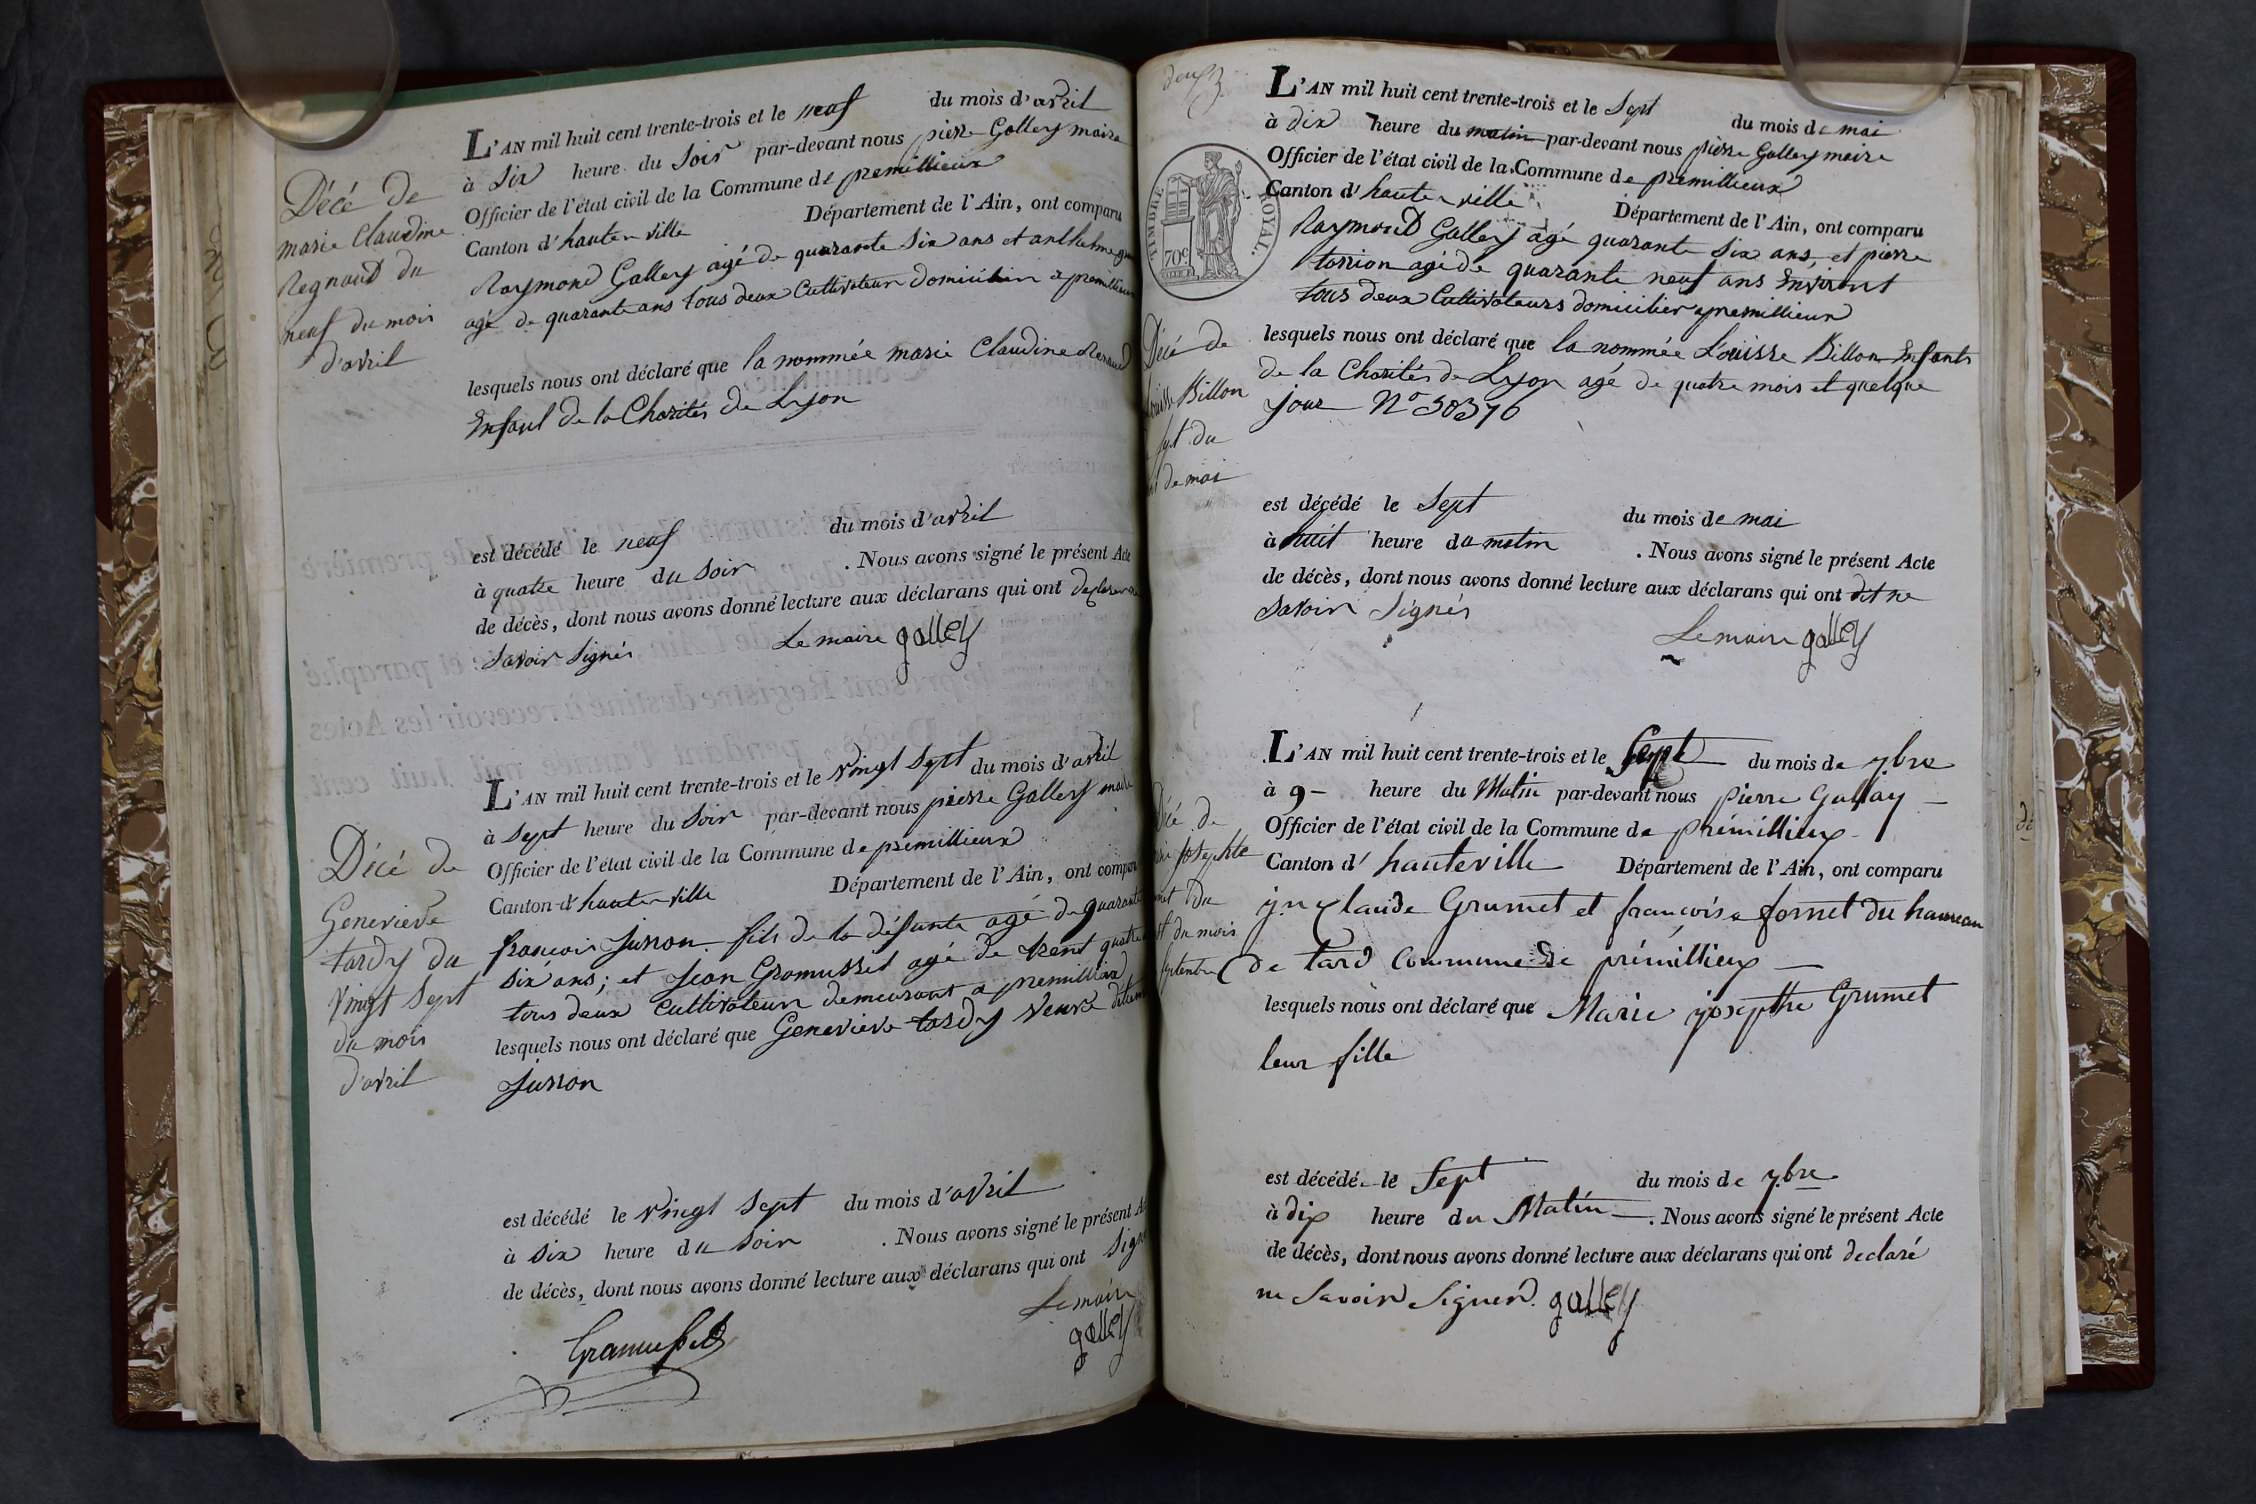 Décé de
marie Claudine
Regnaud du
neuf du mois
d'avril
L'AN mil huit cent trente-trois et le neuf du mois d'avril
à Six heure du Soir par-devant nous pierre Galley maire
Officier de l'état civil de la Commune de premillieux
Canton d'hauteville Département de l'Ain, ont comparu
Raymond Galley agé de quarante Six ans et anthelme
agé de quarante ans tous deux Cultivateur domicilier a premillieux
lesquels nous ont déclaré que la nommée marie Claudine Renaud
Enfant de la Charités de Lyon
est décédé le neuf du mois d'avril
à quatre heure du Soir . Nous avons signé le présent Acte
de décès, dont nous avons donné lecture aux déclarans qui ont
Savoir Signés Le maire galley
Décé de
Genevieve
tardy du
Vingt Sept
du mois
d'avril
L'AN mil huit cent trente-trois et le Vingt Sept du mois d'avril
à Sept heure du Soir par-devant nous pierre Galley maire
Officier de l'état civil de la Commune de premillieux
Canton d'hauteville Département de l'Ain, ont comparu
francois Juron fils de la défunte agé de quarante
Six ans; et Jean Gramusset agé de trent quatre
tous deux Cultivateur demeurant a premillieux
lesquels nous ont déclaré que Genevieve tardy Veuve
Juron
est décédé le Vingt Sept du mois d'avril
à Six heure du Soir . Nous avons signé le présent
de décès, dont nous avons donné lecture aux déclarans qui ont Signé
Le maire
Gramusset galley
TIMBRE ROYAL.
70c
L'AN mil huit cent trente-trois et le Sept du mois de mai
à dix heure du matin par-devant nous pierre Galley maire
Officier de l'état civil de la Commune de prémillieux
Canton d'hauteville Département de l'Ain, ont comparu
Raymond Galley agé quarante Six ans, et pierre
torrion agé de quarante neuf ans Environt
tous deux Cultivateurs domicilier a premillieux
Décé de
Louisse Billon
Sept du
de mai
lesquels nous ont déclaré que la nommée Louisse Billon Enfants
de la Charités de Lyon agé de quatre mois et quelque
jour N° 30376
est décédé le Sept du mois de mai
à huit heure du matin . Nous avons signé le présent Acte
de décès, dont nous avons donné lecture aux déclarans qui ont dit ne
Savoir Signés
Le maire galley
Décé de
josephte
du
du mois
Septembre
L'AN mil huit cent trente-trois et le Sept du mois de 7.bre
à 9 heure du Matin par-devant nous pierre Gallay
Officier de l'état civil de la Commune de prémillieux
Canton d'hauteville Département de l'Ain, ont comparu
jn Claude Grumet et françoise fornet du hameau
de tard Commune de prémillieux
lesquels nous ont déclaré que Marie josepthe Grumet
leur fille
est décédé le Sept du mois de 7.bre
à dix heure du Matin . Nous avons signé le présent Acte
de décès, dont nous avons donné lecture aux déclarans qui ont declaré
ne Savoir Signer. galley